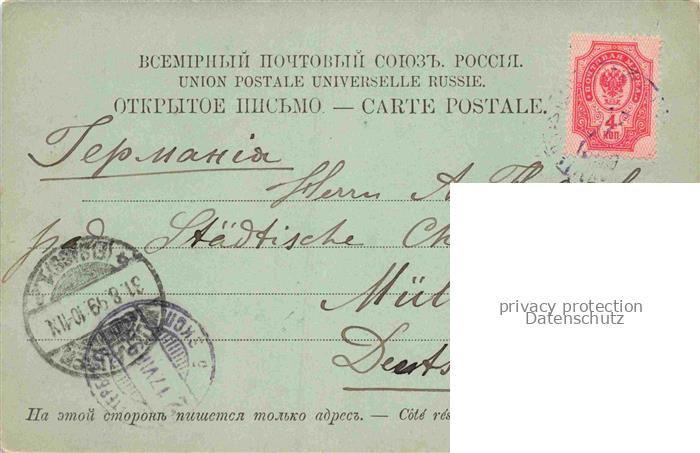 ВСЕМІРНЫЙ ПОЧТОВЫЙ СОЮЗЪ. РОССІЯ.
UNION POSTALE UNIVERSELLE RUSSIE.
ОТКРЫТОЕ ПИСЬМО. — CARTE POSTALE.
ПОЧТОВАЯ МАРКА
4
КОП
Германія
Herrn A.
Städtische Ch
Mül
Deuts
31.8.99.10-11V.
privacy protection
Datenschutz
На этой сторонѣ пишется только адресъ. — Côté rés